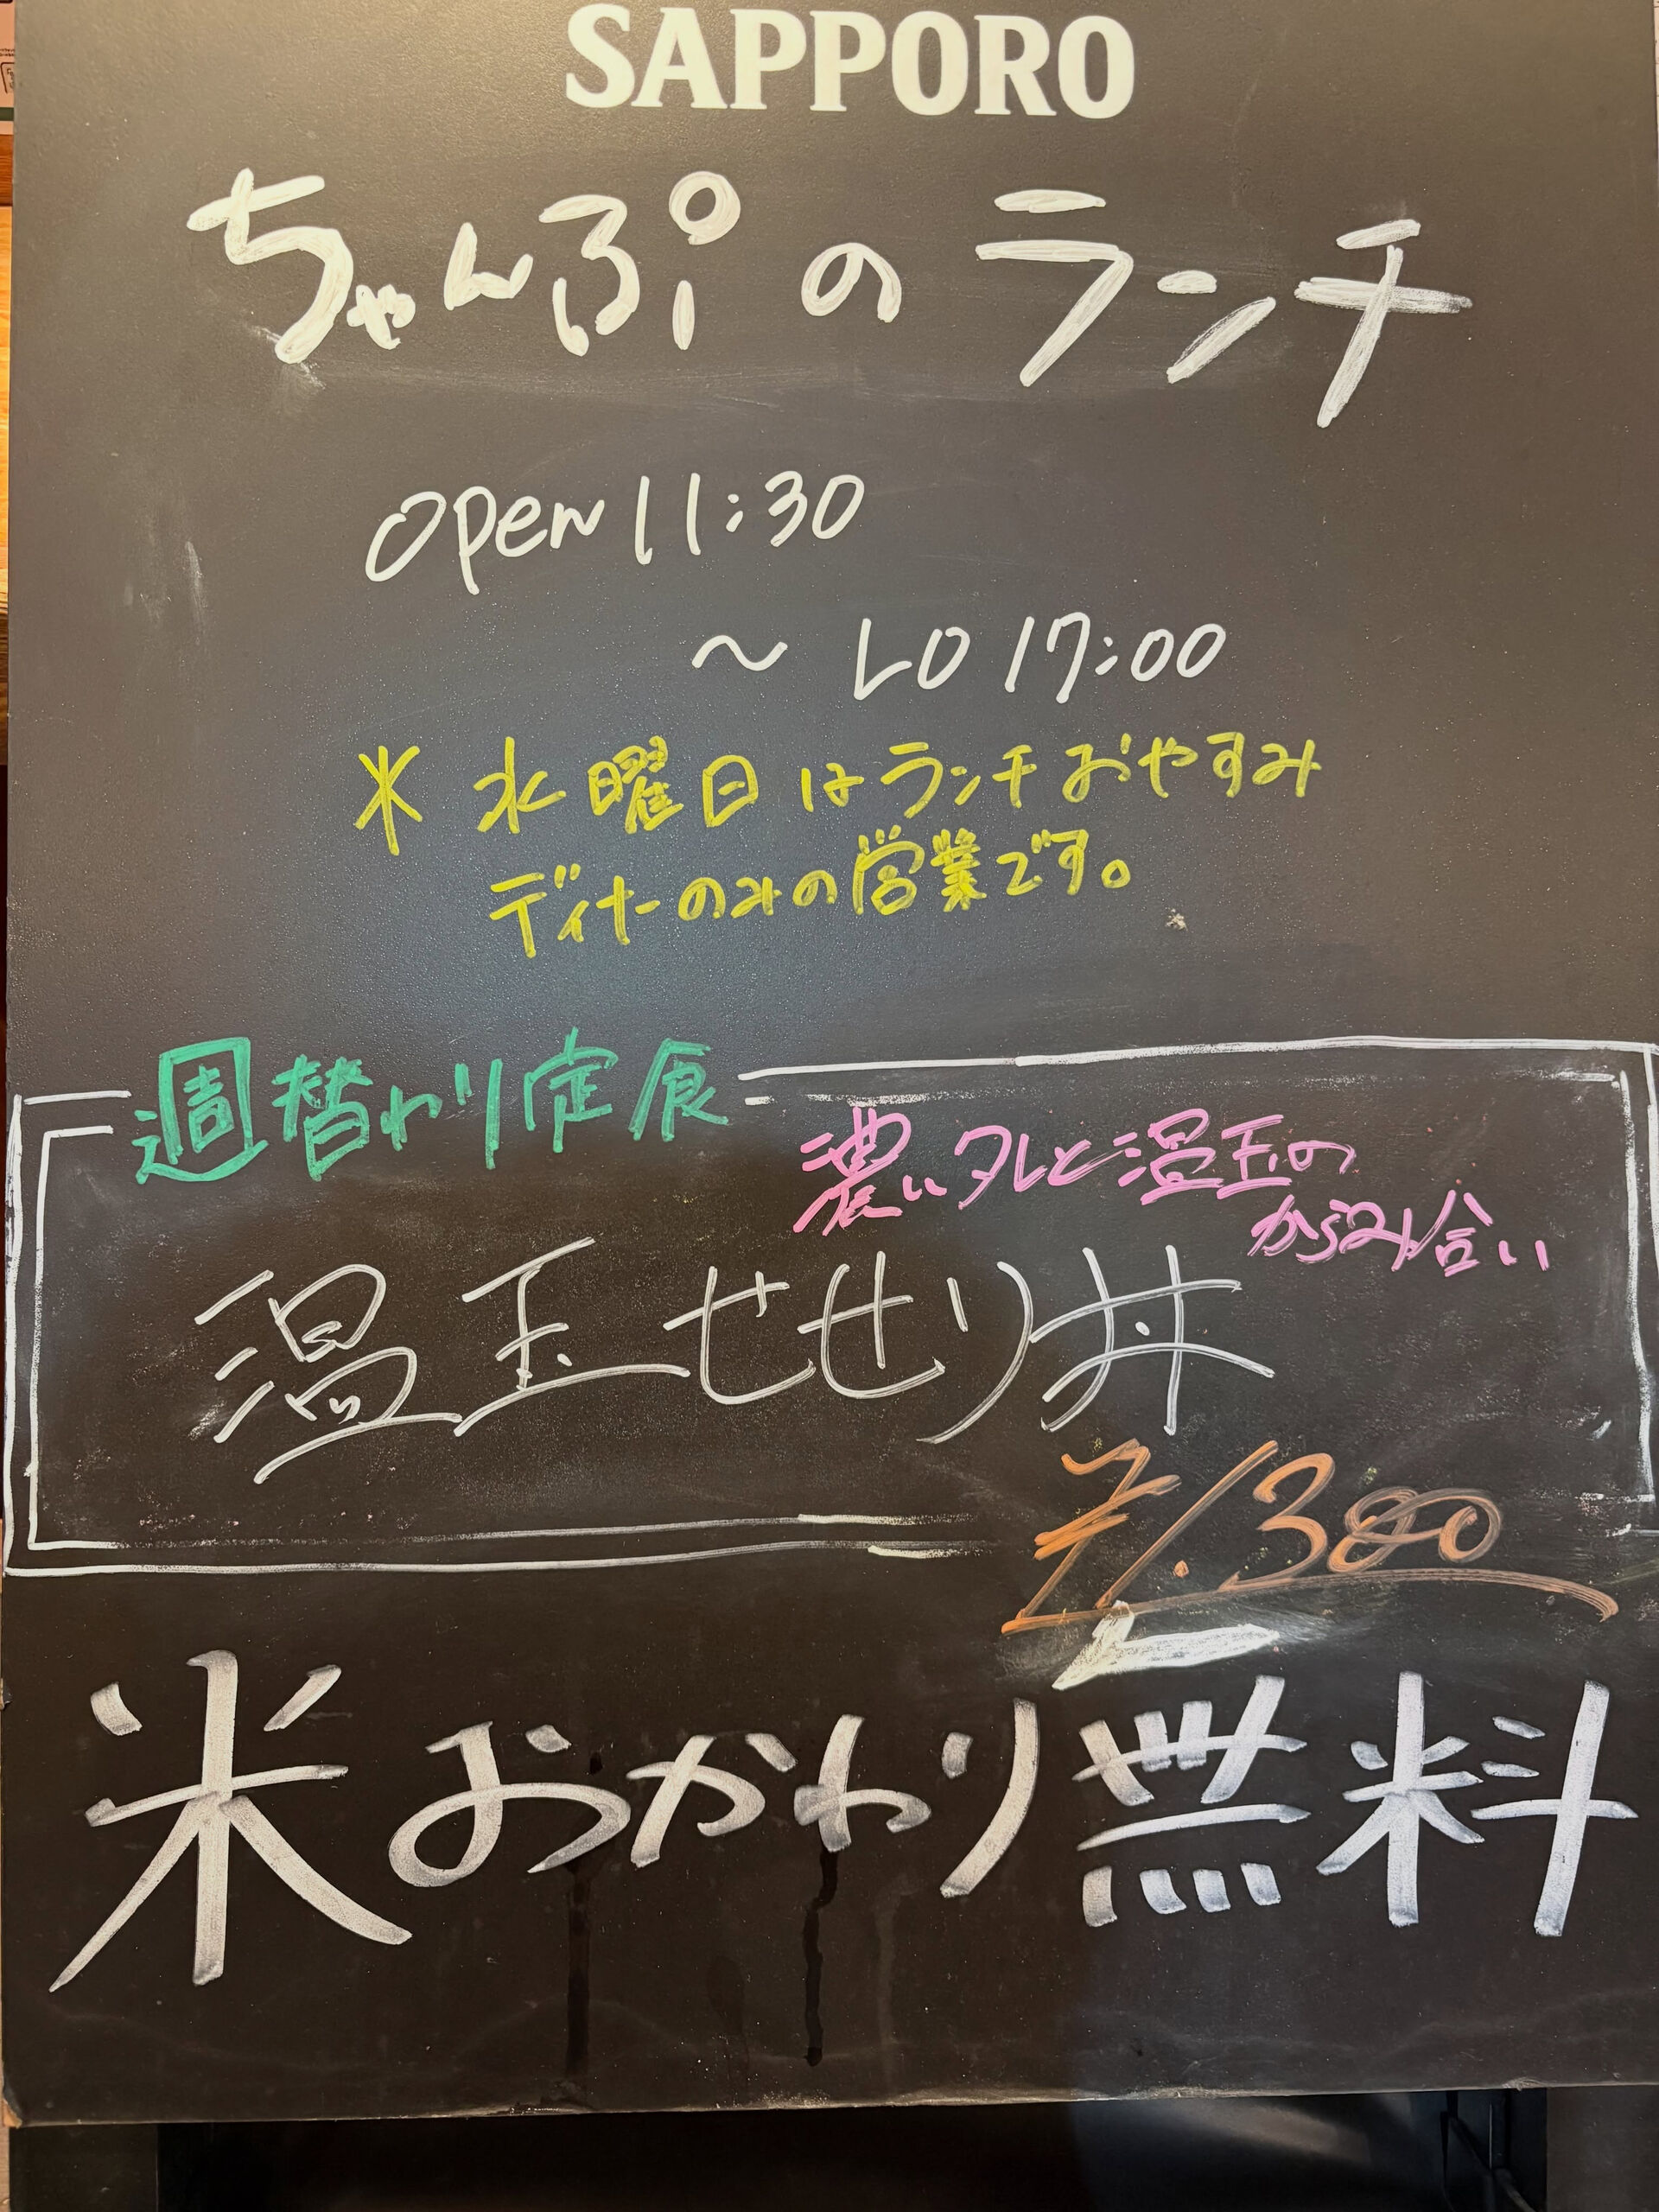 SAPPORO
ちゃんぷのランチ
open 11:30
～ LO 17:00
※ 水曜日はランチおやすみ
ディナーのみの営業です。
週替わり定食
濃いタレと温玉の
からみ合い
温玉せせり丼
¥1.300
米おかわり無料